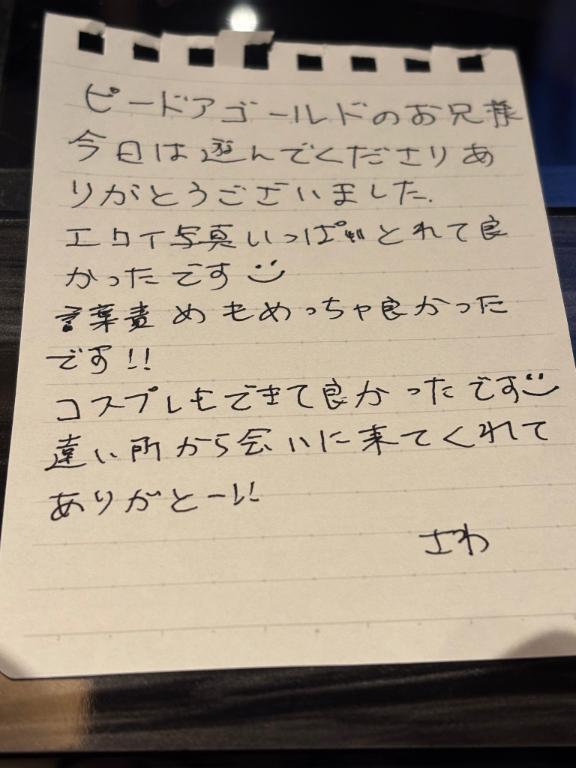 ピードアゴールドのお兄様
今日は遊んでくださりあ
りがとうございました.
エロイ写真いっぱいとれて良
かったです
言葉責めもめっちゃ良かった
です!!
コスプレもできて良かったです
遠い所から会いに来てくれて
ありがとー!!
さわ